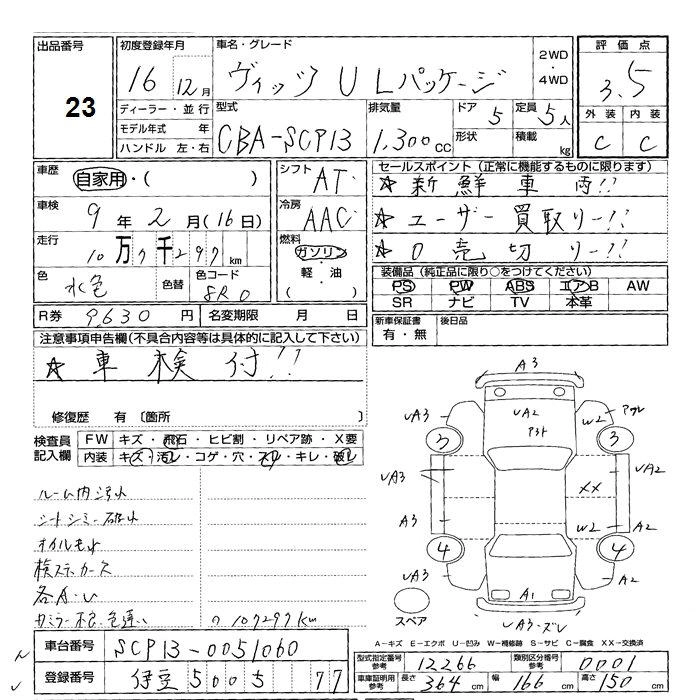 出品番号
23
初度登録年月
16
12月
車名・グレード
ヴィッツ U Lパッケージ
2WD
・
4WD
評価点
3.5
外装 内装
C C
ディーラー・並行
モデル年式 年
ハンドル 左・右
型式
CBA-SCP13
排気量
1,300cc
ドア 5
形状
定員 5人
積載 kg
車歴
自家用・( )
車検
9年2月(16日)
走行
10万7千297km
色
水色
色替
色コード
8R0
シフト
AT
冷房
AAC
燃料
ガソリン
・
軽・油
( )
セールスポイント(正常に機能するものに限ります)
☆新鮮車両!!
☆ユーザー買取り!!
☆0売切リー!!
装備品(純正品に限り○をつけてください)
PS PW ABS エアB AW
SR ナビ TV 本革
R券 9,630円
名変期限 月 日
新車保証書
有・無
後日品
注意事項申告欄(不具合内容等は具体的に記入して下さい)
☆車検付!!
修復歴 有〔箇所 〕
検査員
記入欄
FW キズ・飛石・ヒビ割・リペア跡・X要
内装 キズ・汚レ・コゲ・穴・スレ・キレ・破レ
ルーム内汚れ
シートシミ・破れ
オイルもれ
検ステッカーズ
各A・U
カミラー不良、色違い
107297km
A3
UA3
UA2
P3ト
W2
アグレ
3
3
UA3
UA2
XX
A3
W2
A2
4
4
UA3
A1
A2
スペア
UA3-ズレ
A-キズ E-エクボ U-凹み W-補修跡 S-サビ C-腐食 XX-交換済
車台番号 SCP13-0051060
登録番号 伊豆 500 5 77
型式指定番号
参考
12266
類別区分番号
参考
0001
車庫証明用
参考
長さ 364cm
幅 166cm
高さ 150cm